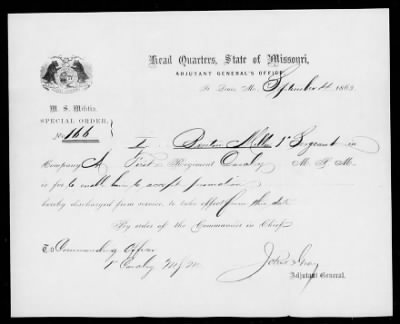 Head Quarters, State of Missouri,
ADJUTANT GENERAL'S OFFICE,
St. Louis, Mo. September 1863
M. S. Militia.
SPECIAL ORDER,
No. 166
I. Miller 1st Sergeant in
Company A, First Regiment Cavalry M. S. M.
is for to enable him to accept promotion
hereby discharged from service, to take effect from this date
By order of the Commander in Chief
To Commanding Officer
1st Cavalry M S M
John B Gray
Adjutant General.